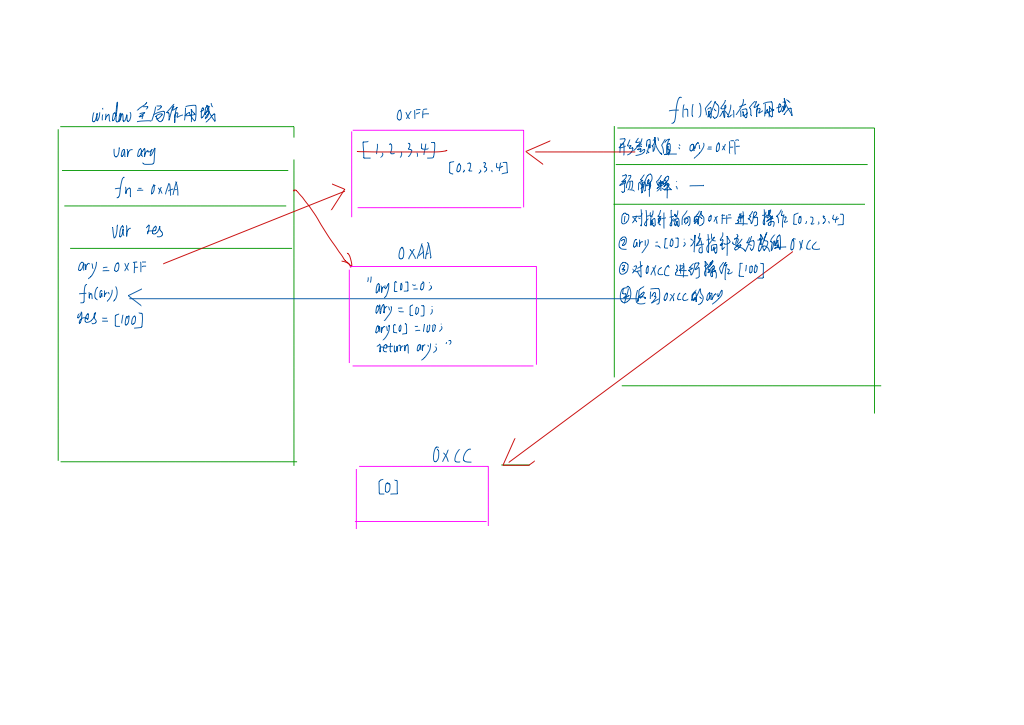 window全局作用域
var ary
fn = 0xAA
var res
ary = 0xFF
fn(ary)
res = [100]
0xFF
[1,2,3,4]
[0,2,3,4]
0xAA
"ary[0]=0;
ary = [0];
ary[0] =100;
return ary; "
0xCC
[0]
fn()的私有作用域
形参赋值: ary=0xFF
预解释: 一
①对指针指向的0xFF进行操作[0,2,3,4]
② ary = [0]; 将指针变为数组 0xCC
③对0xCC进行操作[100]
返回0xCC的ary